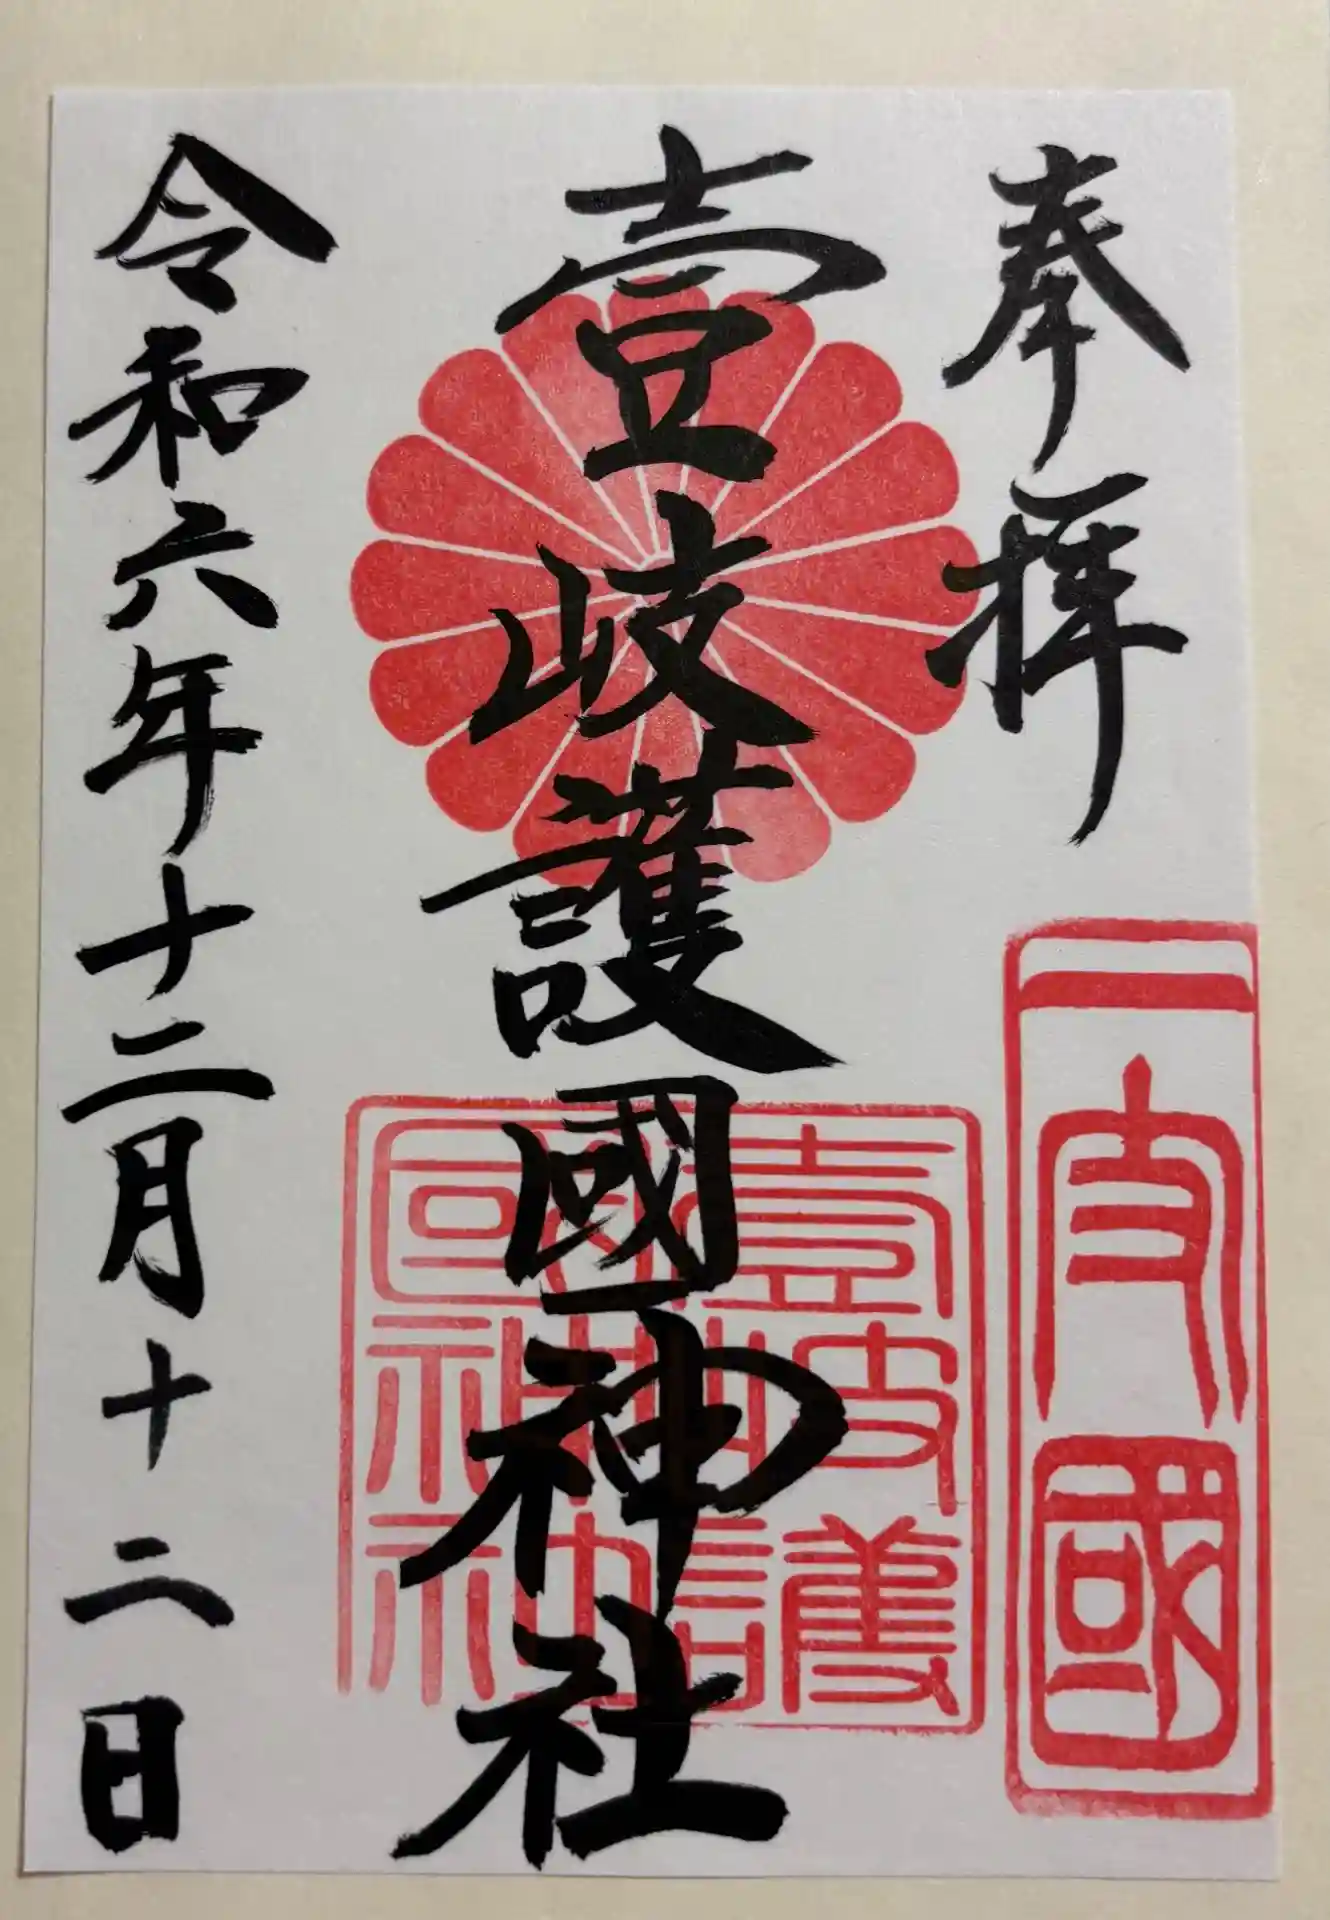 奉拝
一支國
壹岐護國神社
壹岐護
國神社
令和六年十二月十二日